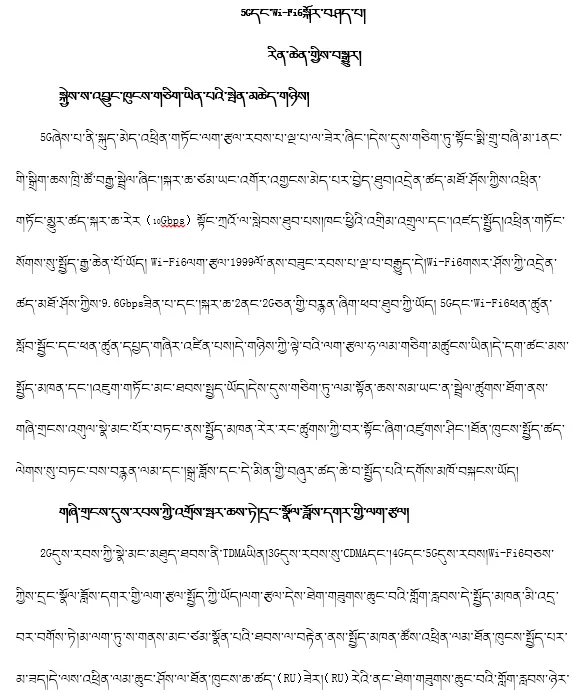 5Gདང་Wi-Fi6སྐོར་བཤད་པ།
རིན་ཆེན་གྱིས་བསྒྱུར།
སྐྱེས་ས་འབྱུང་ཁུངས་གཅིག་ཡིན་པའི་སྤུན་མཆེད་གཉིས།
5Gཞེས་པ་ནི་སྐུད་མེད་འཕྲིན་གཏོང་ལག་རྩལ་རབས་པ་ལྔ་པ་ལ་ཟེར་ཞིང་།དེས་དུས་གཅིག་ཏུ་སྟོང་སྒྲི་གྲུ་བཞི་མ་1ནང་
གི་སྒྲིག་ཆས་ཁྲི་ཚོ་བརྒྱ་སྦྲེལ་ཞིང་།སྐར་ཆ་ཙམ་ཡང་འགོར་འགྱངས་མེད་པར་བྱེད་ཐུབ།འདྲེན་ཚད་མཐོ་ཤོས་ཀྱིས་འཕྲིན་
གཏོང་མྱུར་ཚད་སྐར་ཆ་རེར (10Gbps) སྟོང་ཀྲའོ་ལ་སླེབས་ཐུབ་པས།ཁང་ཕྱིའི་འགྲིམ་འགྲུལ་དང་།འཛད་སྤྱོད།འཕྲིན་གཏོང་
སོགས་སུ་སྤྱོད་རྒྱ་ཆེན་པོ་ཡོད། Wi-Fi6ལག་རྩལ་1999ལོ་ནས་བཟུང་རབས་པ་ལྔ་པ་བརྒྱུད་དེ།Wi-Fi6གསར་ཤོས་ཀྱི་འདྲེན་
ཚད་མཐོ་ཤོས་ཀྱིས་9.6Gbpsཟིན་པ་དང་།སྐར་ཆ་2ནང་2Gཅན་གྱི་བརྙན་ཞིག་ཕབ་ཐུབ་ཀྱི་ཡོད། 5Gདང་Wi-Fi6ཕན་ཚུན་
སློབ་སྦྱོང་དང་ཕན་ཚུན་དཔྱད་གཞིར་འཛིན་པས།དེ་གཉིས་ཀྱི་ལྟེ་བའི་ལག་རྩལ་ཧ་ལམ་གཅིག་མཚུངས་ཡིན།དེ་དག་ཚང་མས་
སྤྱོད་མཁན་དང་།འཇུག་གཏོང་མང་ཐབས་སྤྱད་ཡོད།དེས་དུས་གཅིག་ཏུ་ལམ་སྟོན་ཆས་སམ་ཡང་ན་སྦྲེལ་ཚུགས་ཐོག་ནས་
གཞི་གྲངས་འགུལ་སྣེ་མང་པོར་བཏང་ནས་སྤྱོད་མཁན་རེར་རང་ཚུགས་ཀྱི་བར་སྟོང་ཞིག་འཛུགས་ཤིང་།ཐོན་ཁུངས་སྤྱོད་ཚད་
ལེགས་སུ་བཏང་བས་བརྙན་ལམ་དང་།སྒྲ་ཟློས་དང་དེ་མིན་གྱི་བཞུར་ཚད་ཆེ་བ་སྤྱོད་པའི་དགོས་མཁོ་བསྐངས་ཡོད།
གཞི་གྲངས་དུས་རབས་ཀྱི་འགྲོས་སྤར་ཆས་ཏེ།དྲང་སྣོལ་ཟློས་དགར་གྱི་ལག་རྩལ།
2Gདུས་རབས་ཀྱི་སྣེ་མང་མཐུད་ཐབས་ནི་TDMAཡིན།3Gདུས་རབས་སུ་CDMAདང་།4Gདང་5Gདུས་རབས།Wi-Fi6བཅས་
ཀྱིས་དྲང་སྣོལ་ཟློས་དགར་གྱི་ལག་རྩལ་སྤྱོད་ཀྱི་ཡོད།ལག་རྩལ་དེས་ཐེག་གཟུགས་ཆུང་བའི་གློག་རླབས་དེ་སྤྱོད་མཁན་མི་འདྲ་
བར་བགོས་ཏེ།མ་ལག་ཏུ་ས་གནས་མང་ཙམ་སྣོན་པའི་ཐབས་ལ་བརྟེན་ནས་སྤྱོད་མཁན་ཚོས་འཕྲིན་ལམ་ཐོན་ཁུངས་སྤྱོད་པར་
མ་ཟད།དེ་ལས་འཕྲིན་ལམ་ཆུང་ཤོས་ལ་ཐོན་ཁུངས་ཆ་ཚད་(RU)ཟེར།(RU)རེའི་ནང་ཐེག་གཟུགས་ཆུང་བའི་གློག་རླབས་ཉེར་